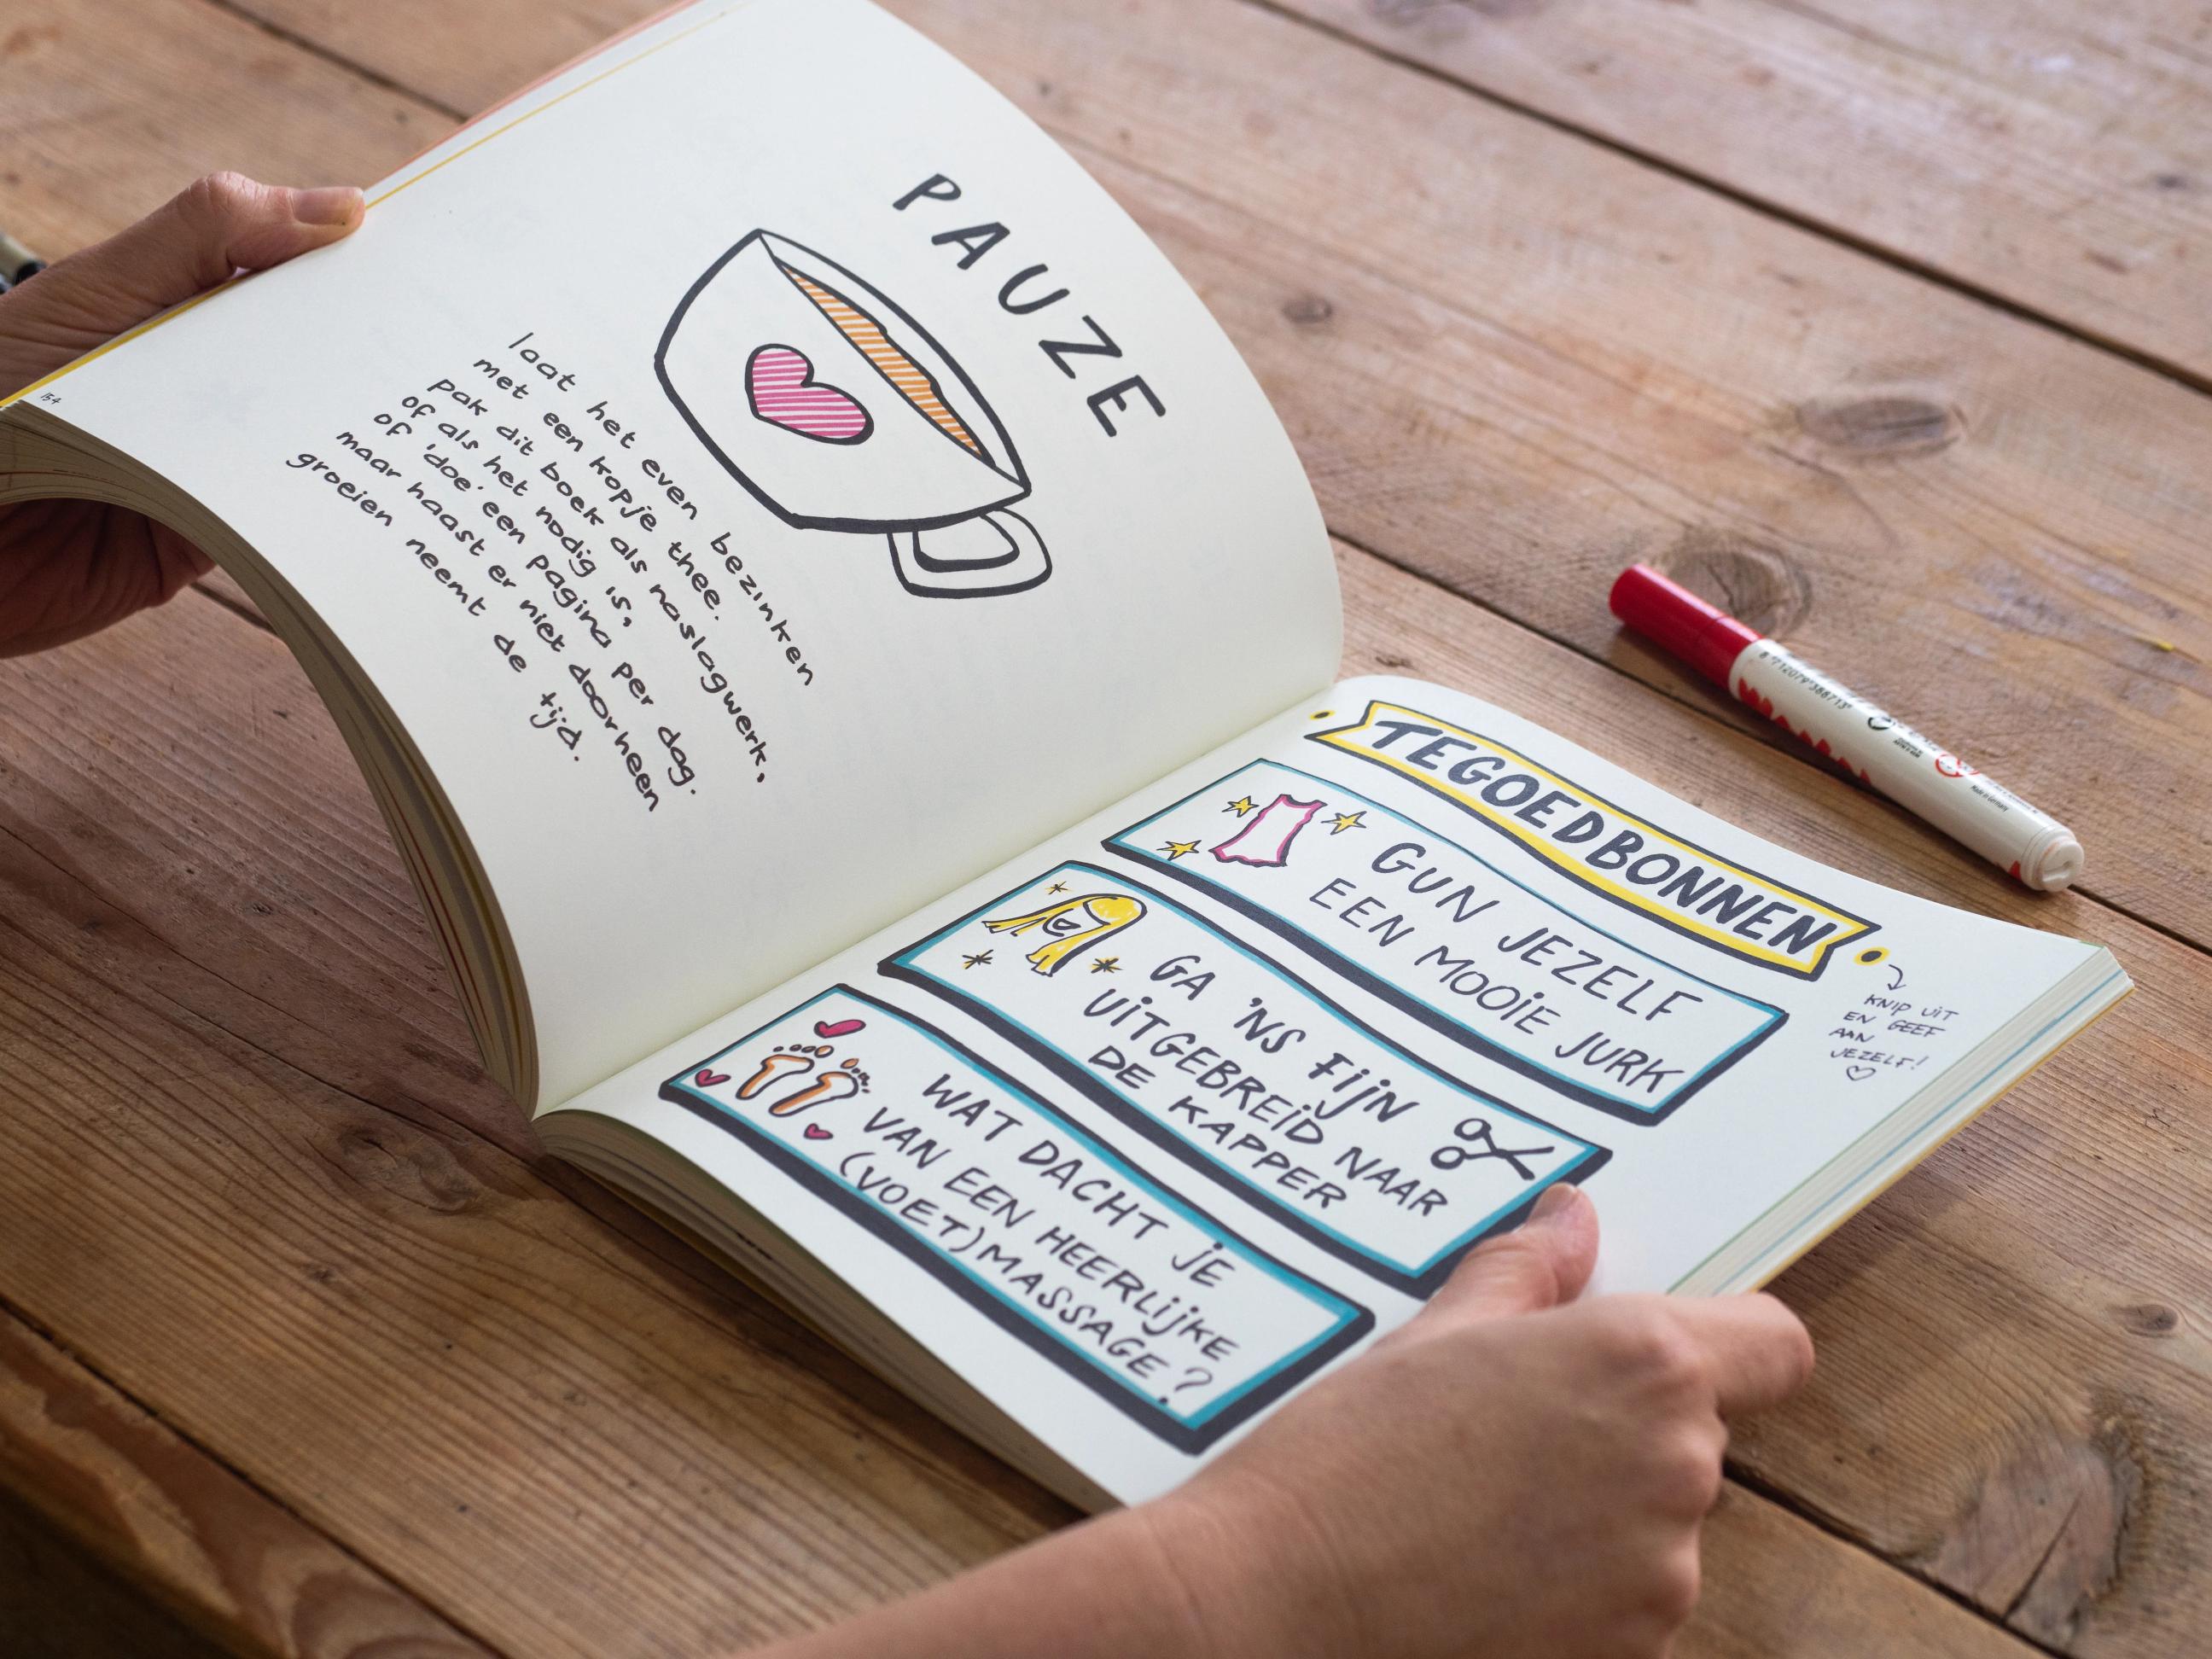 PAUZE
laat het even bezinken
met een kopje thee.
pak dit boek als naslagwerk,
of als het nodig is,
of 'doe' een pagina per dag.
maar haast er niet doorheen
groeien neemt de tijd.
154
TEGOEDBONNEN
KNIP UIT
EN GEEF
AAN
JEZELF!
GUN JEZELF
EEN MOOIE JURK
GA 'NS FIJN
UITGEBREID NAAR
DE KAPPER
WAT DACHT JE
VAN EEN HEERLIJKE
(VOET)MASSAGE?
Made in Germany